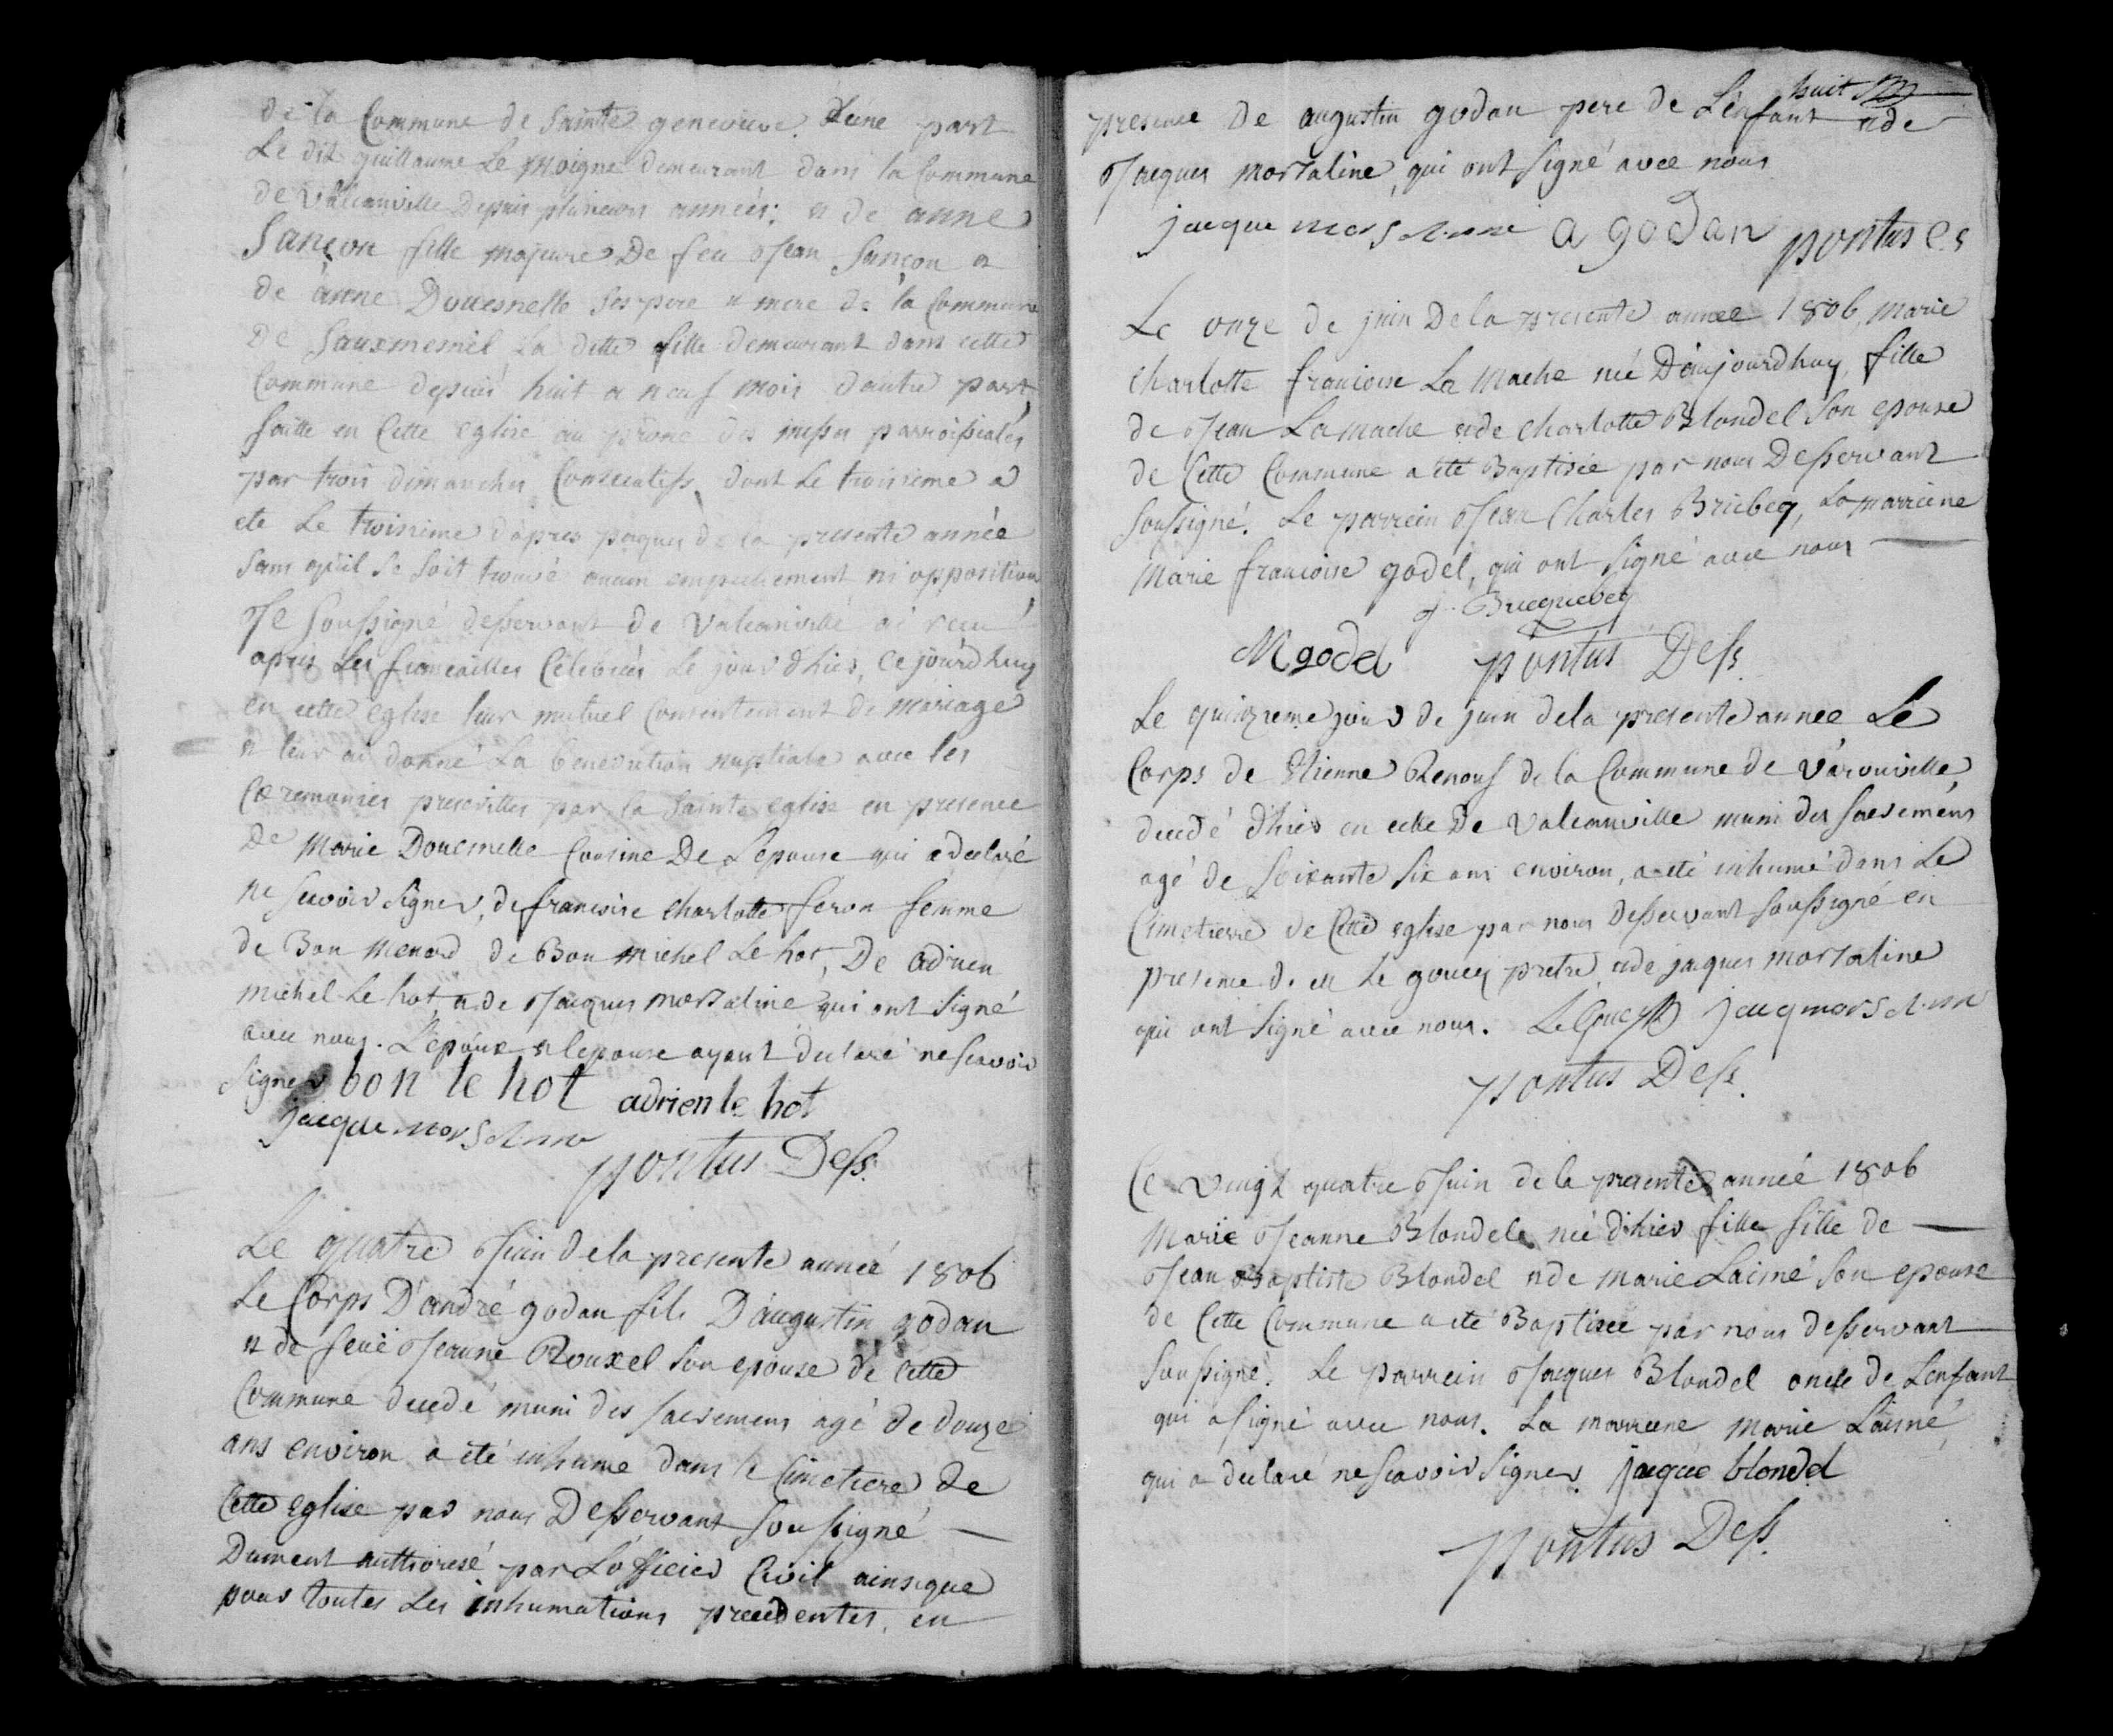 de la Commune de Sainte genevieve. d'une part
Le dit guillaume Le Moigne demeurant dans la Commune
de Valcanville depuis plusieurs années: et de anne
Sançon fille majeure De feu Jean Sançon et
de anne Douesnelle ses pere et mere de la Commune
de Sauxmesnil la ditte fille demeurant dans cette
Commune depuis huit a neuf mois d'autre part,
faitte en Cette eglise au prone des messes parroissiales
par trois dimanches Consecutifs, dont Le troisieme a
ete Le troisieme d'apres paques de la presente année
sans qu'il se soit trouvé aucun empechement ni opposition,
Je Soussigné desservant de Valcanville ai recu
apres Les fiancailles Celebrées Le jour d'hier, ce jourdhuy
en cette eglise leur mutuel Consentement de mariage
et leur ai donné La benediction nuptiale avec les
Cœremonies prescrittes par la Sainte eglise en presence
de Marie Douesnelle Cousine De L'epouse qui a declaré
ne scavoir signer, de francoise charlotte feron femme
de Bon Menard de Bon michel Le hot, De Adrien
michel Le hot, et de Jacques mortaline qui ont signé
avec nous. L'epoux et lepouse ayant declaré ne scavoir
signer bon le hot adrien le hot
jacque
pontus Dess.
Le quatre Juin de la presente année 1806
Le Corps D'andré godan fils D'augustin godan
et de feüe Jeanne Rouxel son epouse de Cette
Commune decedé muni des sacremens agé de douze
ans environ a été inhumé dans le Cimetiere de
Cette eglise par nous Desservant soussigné
Dument authorisé par L'officier Civil ainsique
pour toutes Les inhumations precedentes, en
huit
presence De augustin godan pere de L'enfant et de
Jacques mortaline, qui ont signé avec nous
jacque a godan pontus
Le onze de juin De la presente année 1806, Marie
charlotte francoise La Mache née D'aujourdhuy, fille
de Jean Lamache et de charlotte Blondel son epouse
de Cette Commune a été Baptisée par nous Desservant
soussigné. Le parrein Jean Charles Bricbeq, La marriene
Marie francoise godel, qui ont signé avec nous
j. Bricquebeq
M godel pontus Dess.
Le quinzieme jour de juin de la presente année Le
Corps de Etienne Renouf de la Commune de Varouville,
decedé d'hier en celle De Valcanville muni des sacremens
agé de soixante six ans environ, a été inhumé dans Le
Cimetierre de Cette eglise par nous Desservant soussigné en
presence de Le goucy pretre et de jaques mortaline
qui ont signé avec nous. jacq
pontus Dess.
Ce vingt quatre Juin de la presente année 1806
Marie Jeanne Blondele née d'hier fille fille de
Jean Baptiste Blondel et de marie Laisné son epouse
de Cette Commune a été Baptisée par nous desservant
soussigné. Le parrein Jacques Blondel oncle de L'enfant
qui a signé avec nous. La marriene marie Laisné,
qui a declaré ne scavoir signer. jaque blondel
pontus Dess.